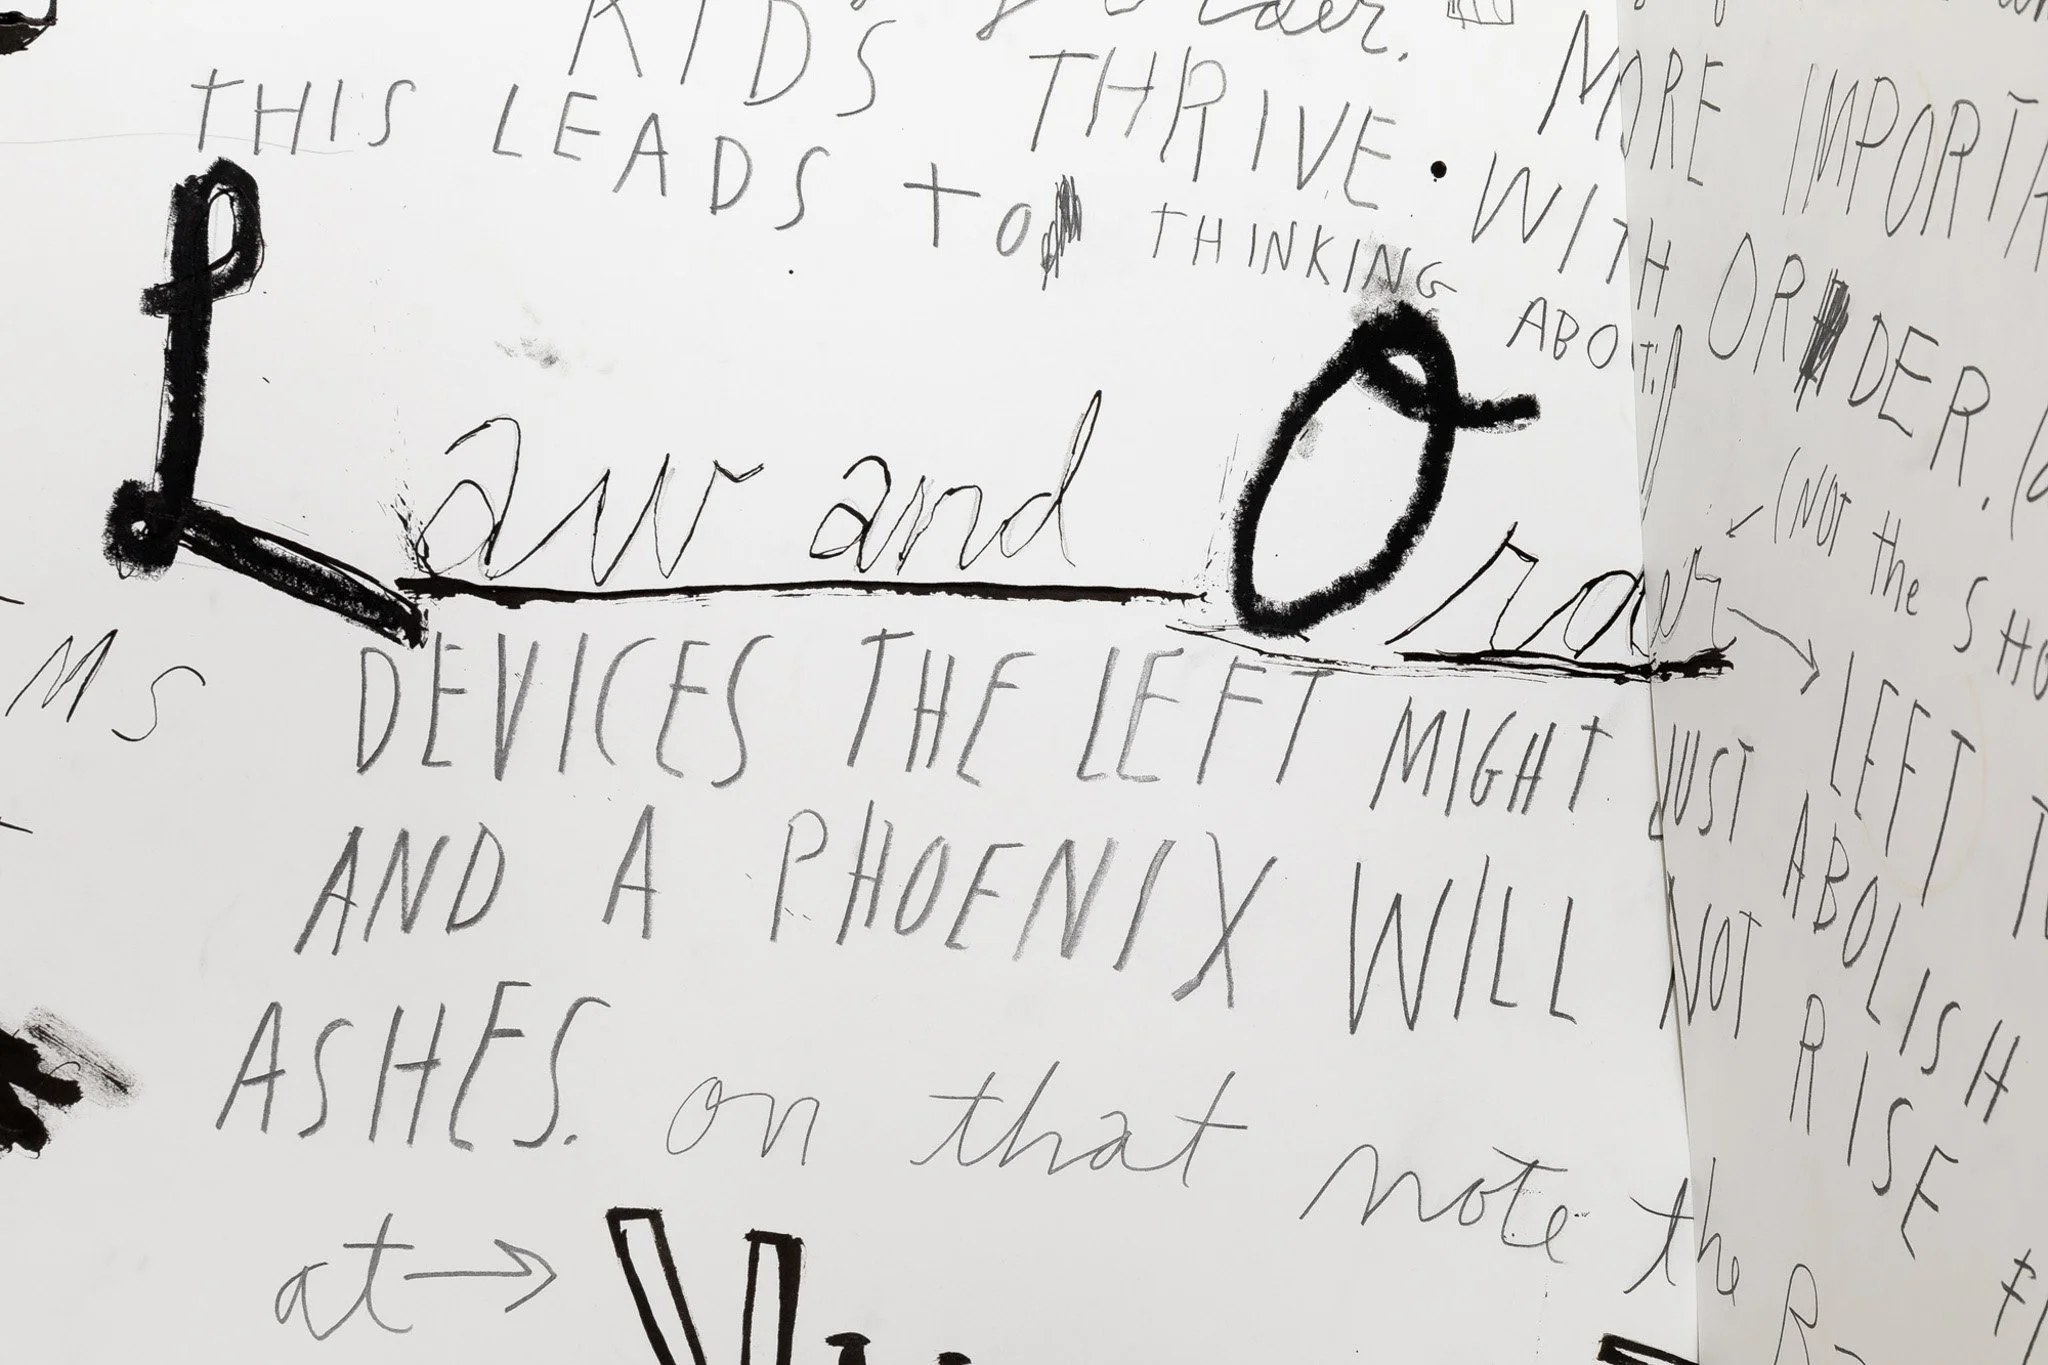 order.
KIDS THRIVE. WITH ORDER.
MORE IMPORTA
THIS LEADS TO THINKING ABOUT
Law and Order
(NOT the SHO
MS
DEVICES THE LEFT MIGHT JUST ABOLISH
LEFT TO
AND A PHOENIX WILL NOT RISE
ASHES. on that note the R-
at →